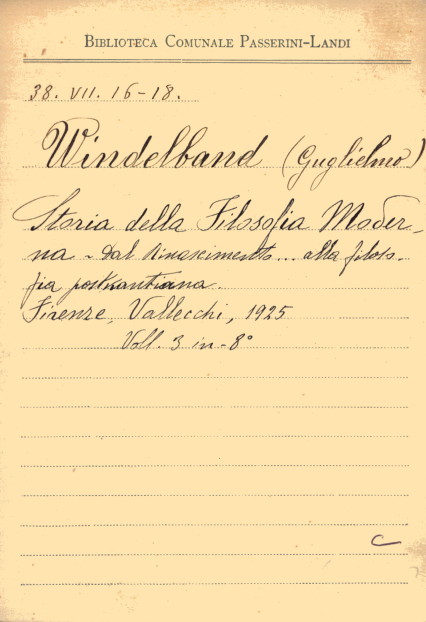 BIBLIOTECA COMUNALE PASSERINI-LANDI
38. VII. 16-18.
Windelband (Guglielmo)
Storia della Filosofia Moder-
na - Dal Rinascimento... alla filoso-
fia postkantiana.
Firenze, Vallecchi, 1925
Voll. 3 in-8°
C